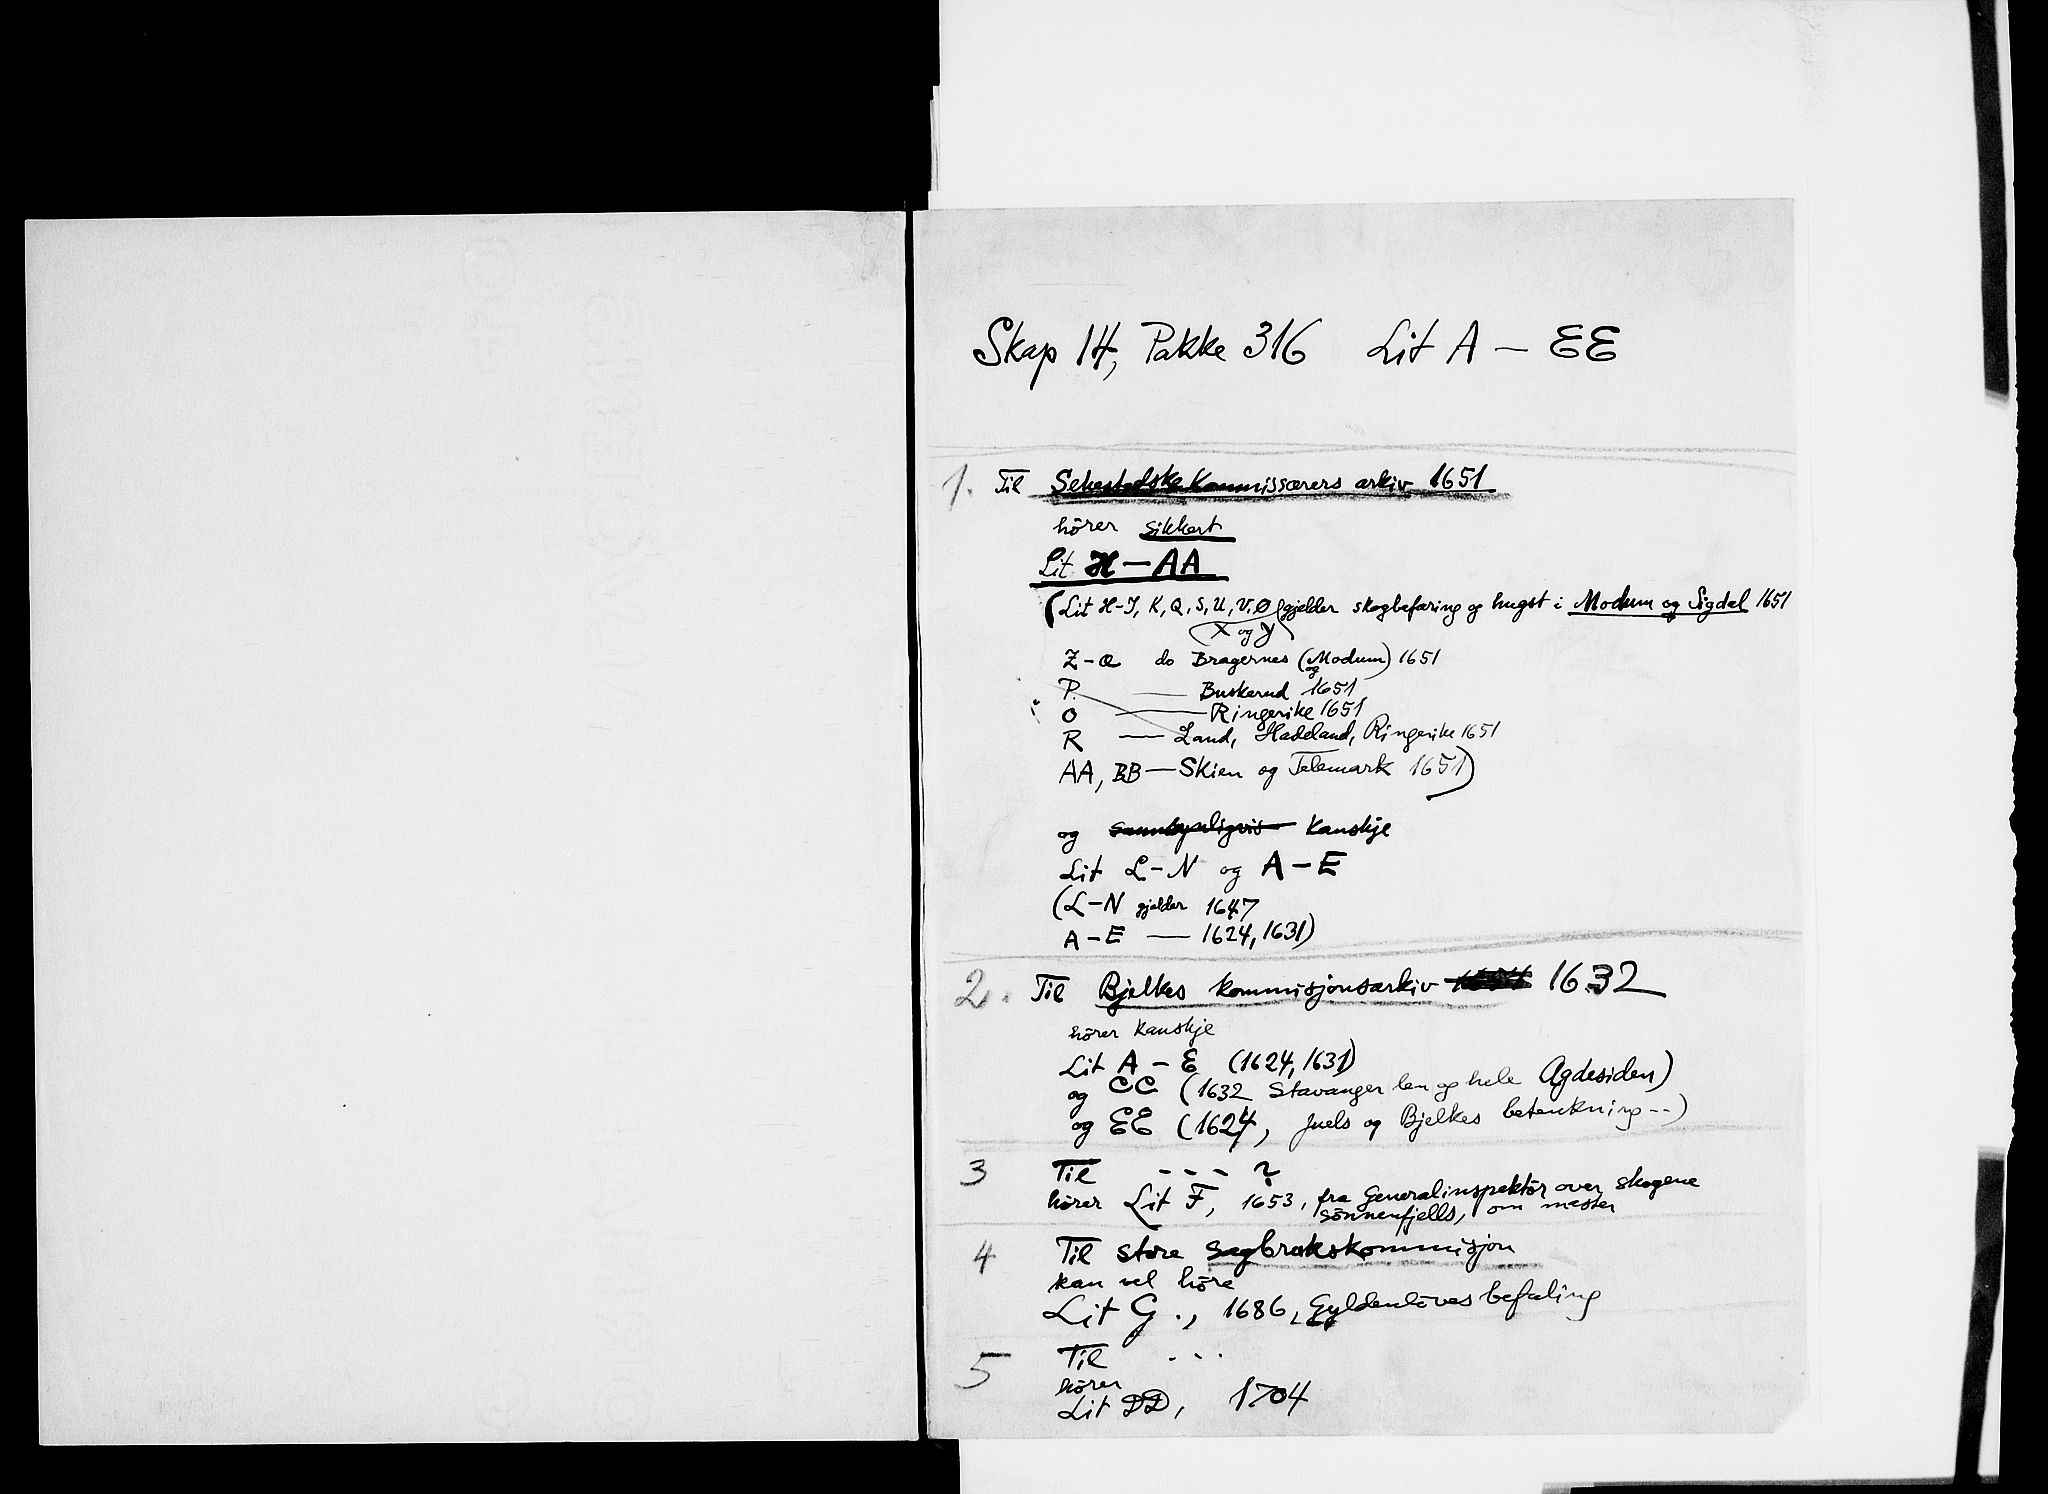 Skap 14, Pakke 316 Lit A – EE
1. Til Sehestedske Kommissærers arkiv 1651
hörer sikkert
Lit H – AA
(Lit H-J, K, Q, S, U, V, Ø gjelder skogbefaring og hugst i Modum og Sigdal 1651
(X og Y)
Z-Æ do Bragernes (og Modum) 1651
P. — Buskerud 1651
O — Ringerike 1651
R — Land, Hadeland, Ringerike 1651
AA, BB — Skien og Telemark 1651)
og sannsynligvis kanskje
Lit L-N og A – E
(L-N gjelder 1647
A-E — 1624, 1631)
2. Til Bjelkes kommisjonsarkiv 1632
hörer kanskje
Lit A – E (1624, 1631)
og CC (1632 Stavanger len og hele Agdesiden)
og EE (1624, Juels og Bjelkes betenkning --)
3 Til - - - ?
hörer Lit F, 1653, fra Generalinspektör over skogene
sönnenfjells, om master
4 Til store Sagbrukskommisjon
kan vel höre
Lit G., 1686, Gyldenlöves befaling
5 Til . . .
hörer
Lit DD, 1704